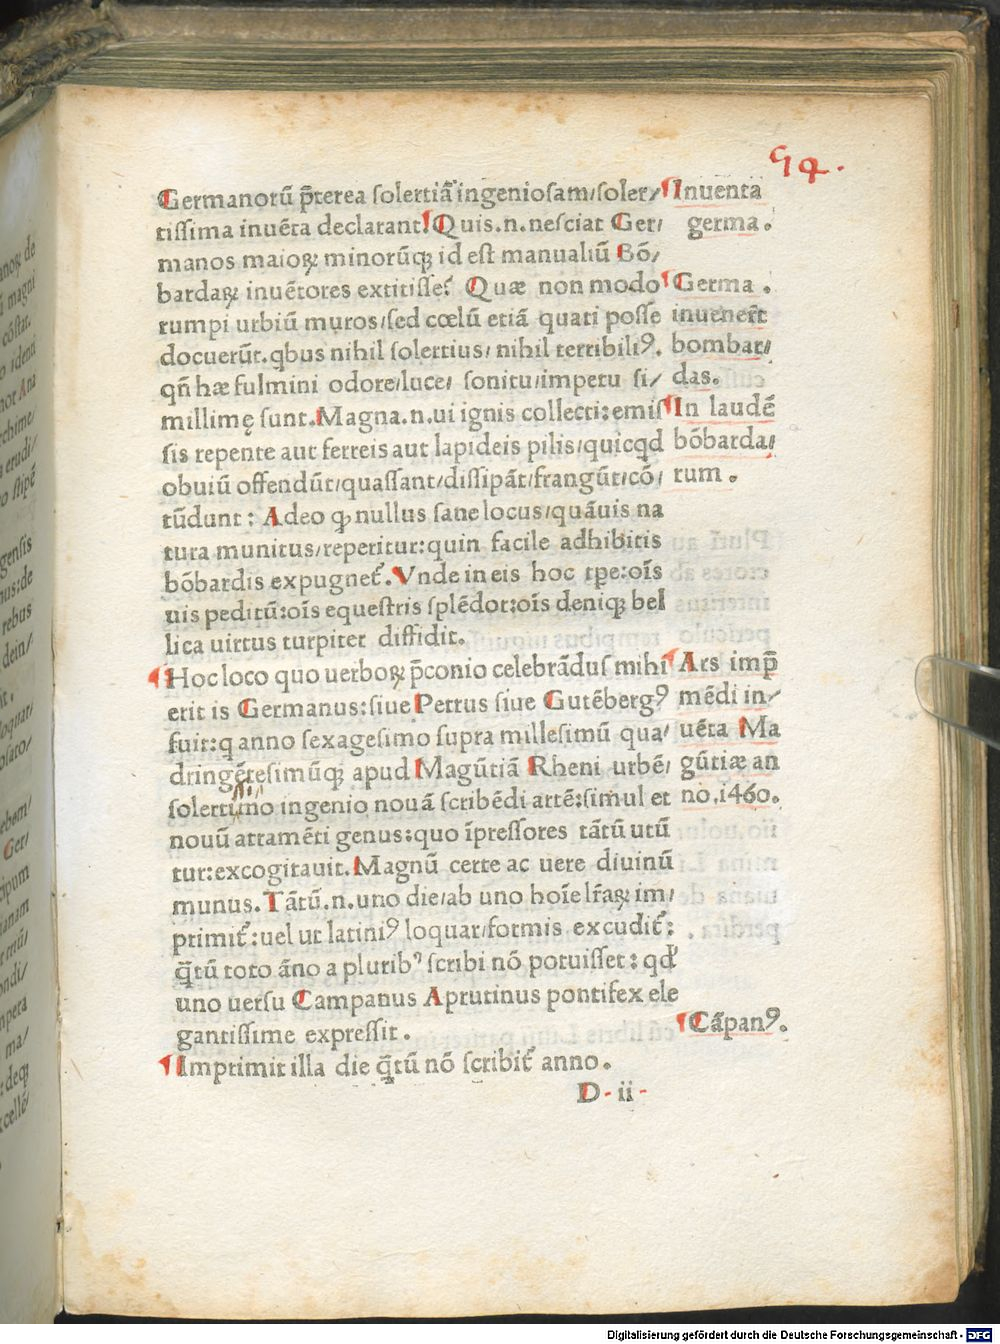 94.
Germanorū p̄terea solertiā ingeniosam/soler/
tissima inuēta declarant. Quis.n.nesciat Ger/
manos maioꝝ minorūqꝫ id est manualiū Bō/
bardaꝝ inuētores extitisse? Quæ non modo
rumpi urbiū muros/sed cœlū etiā quati posse
docuerūt.qbus nihil solertius/nihil terribiliꝰ.
qn̄ hæ fulmini odore/luce/ sonitu/impetu si/
millimę sunt. Magna.n.ui ignis collecti:emis
sis repente aut ferreis aut lapideis pilis/quicqd
obuiū offendūt/quassant/dissipāt/frangūt/cō/
tūdunt: Adeo ꝙ nullus sane locus/quāuis na
tura munitus/reperitur:quin facile adhibitis
bōbardis expugnet̄. Vnde in eis hoc tpe:oīs
uis peditū:oīs equestris splēdor:oīs deniqꝫ bel
lica uirtus turpiter diffidit.
¶Hoc loco quo uerboꝝ p̄conio celebrādus mihi
erit is Germanus:siue Petrus siue Gutēbergꝰ
fuit:q anno sexagesimo supra millesimū qua/
dringētesimūqꝫ apud Magūtiā Rheni urbē/
solertissimo ingenio nouā scribēdi artē:simul et
nouū atramēti genus:quo īpressores tātū utū
tur:excogitauit. Magnū certe ac uere diuinū
munus. Tātū.n.uno die/ab uno hoīe lr̄aꝝ im/
primit̄:uel ut latiniꝰ loquar/formis excudit̄:
q̄tū toto āno a pluribꝰ scribi nō potuisset: qd'
uno uersu Campanus Aprutinus pontifex ele
gantissime expressit.
¶Imprimit illa die q̄tū nō scribit̄ anno.
D. ii.
¶Inuenta
germa.
¶Germa.
inuener̄t
bombar/
das.
¶In laudē
bōbarda/
rum.
¶Ars imp̄
mēdi in/
uēta Ma
gūtiæ an
no.1460.
¶Cāpanꝰ.
Digitalisierung gefördert durch die Deutsche Forschungsgemeinschaft - DFG